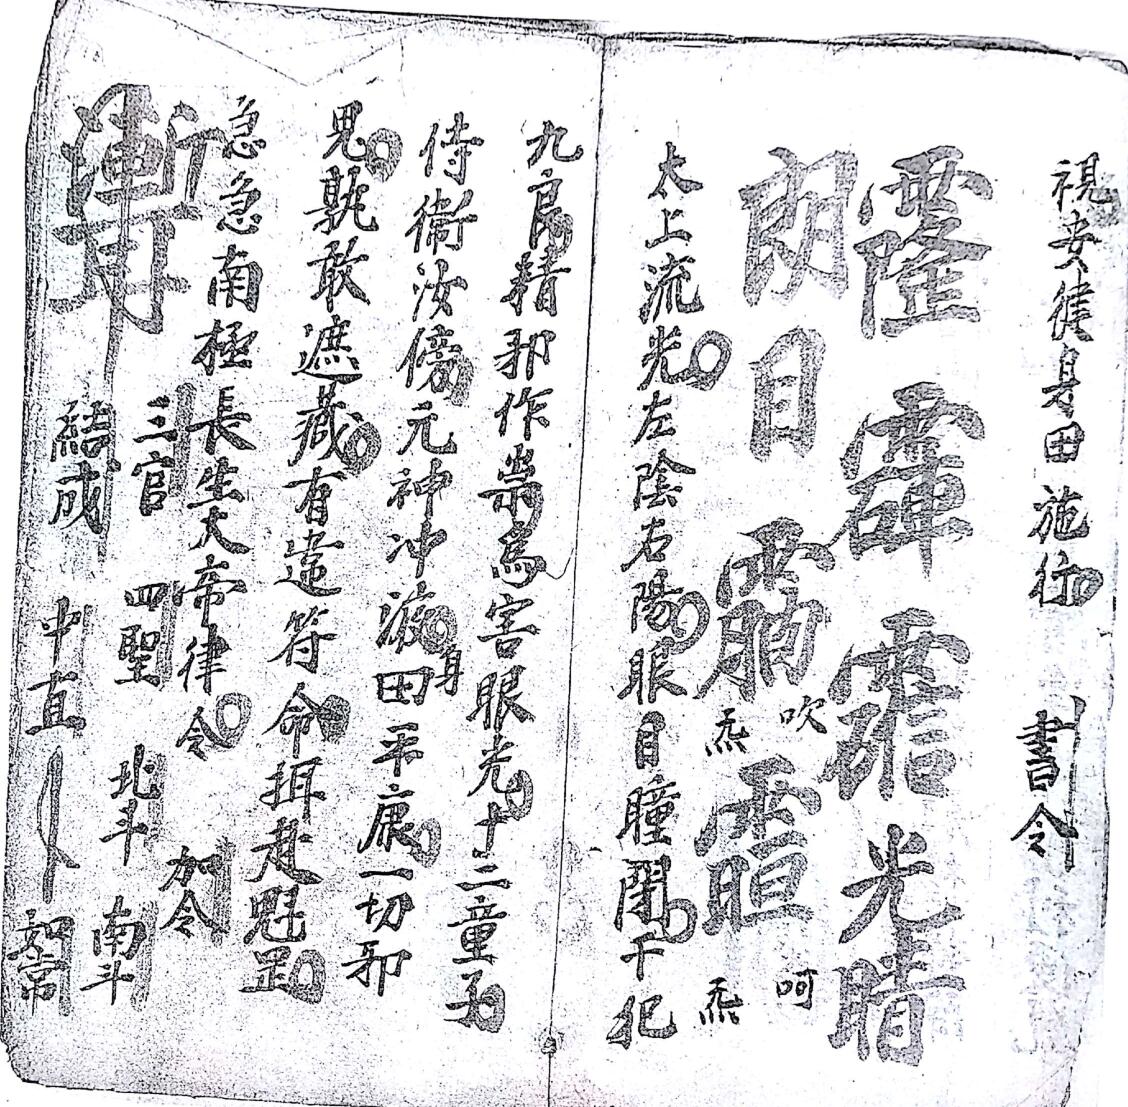 視安健身田施行 書令
光晴
朗目
吹炁 呵炁
太上流光左陰右陽眼目瞳開干犯
九良精邪作祟為害眼光十二童子
侍衛汝傍元神冲液身田平康一切邪
鬼孰敢遮藏有違符命押赴魁罡
急急南極長生大帝律令 加令
三官 四聖 北斗 南斗
結成 中直 如常